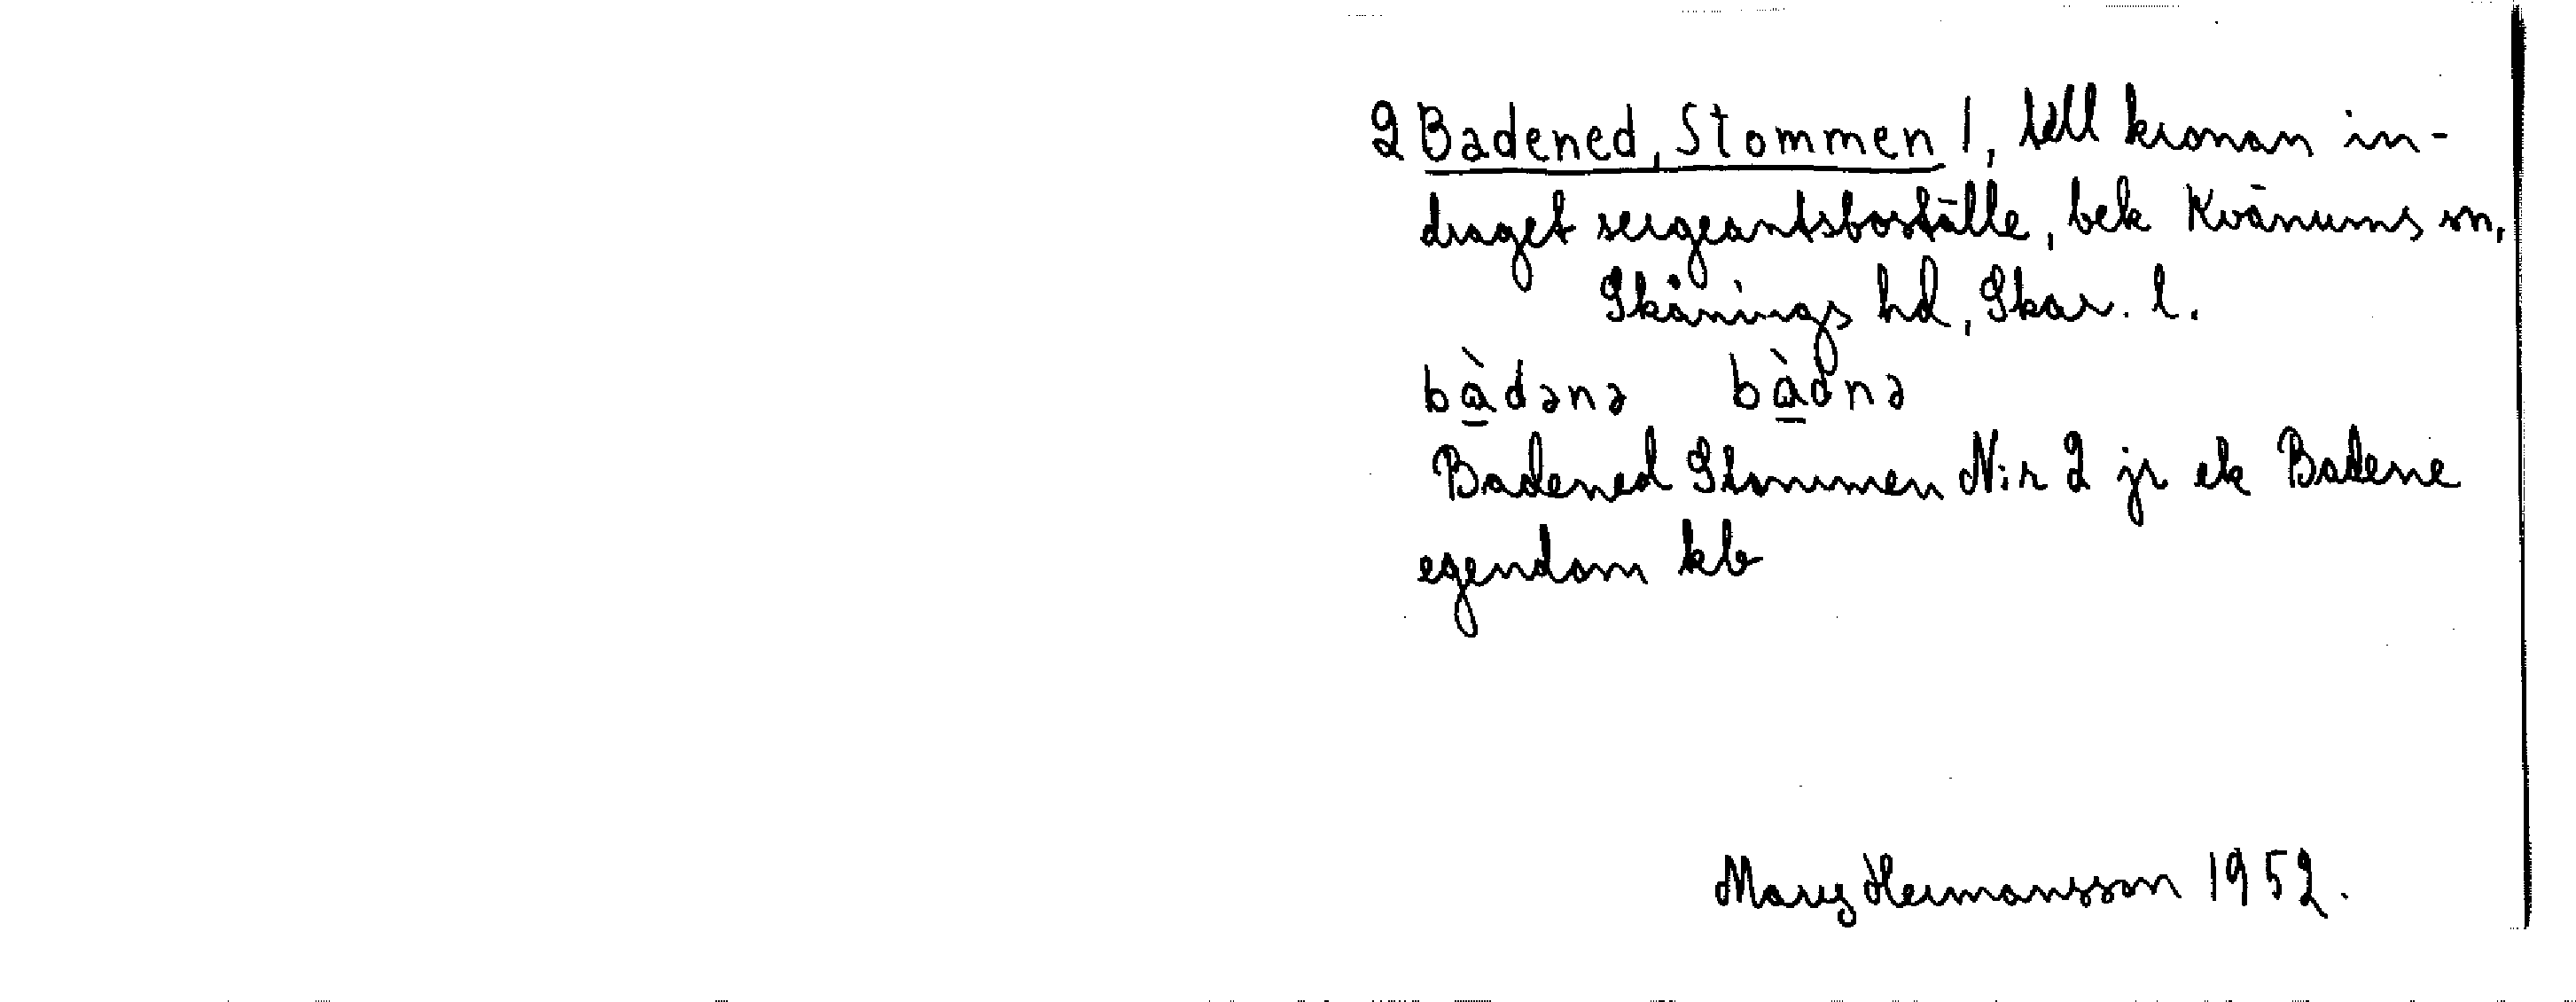 2 Badened, Stommen 1, till kronan in-
draget sergeantsboställe, bek Kvänums sn,
Skånings hd, Skar. l.
bàdənə bàdnə
Badened Stommen N:r 2 jr ek Badene
egendom kb
Mary Hermansson 1952.